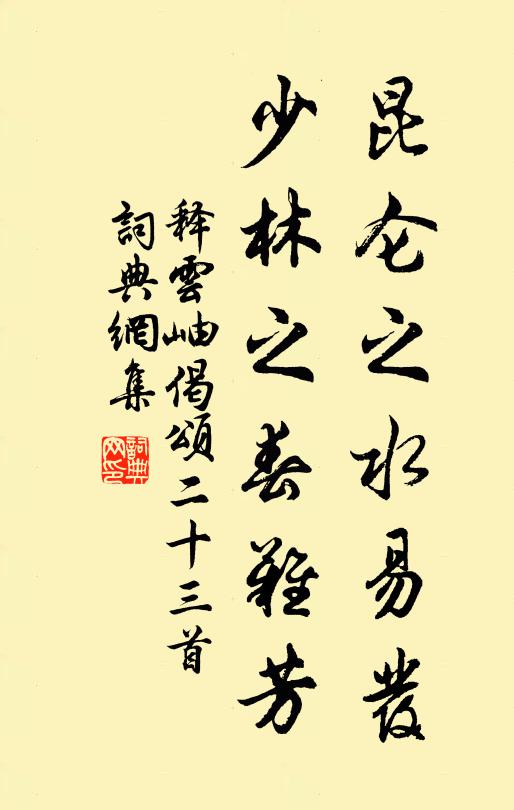 昆仑之水易發
少林之春難芳
释雲岫偈頌二十三首
詞典網集
詞典
网印